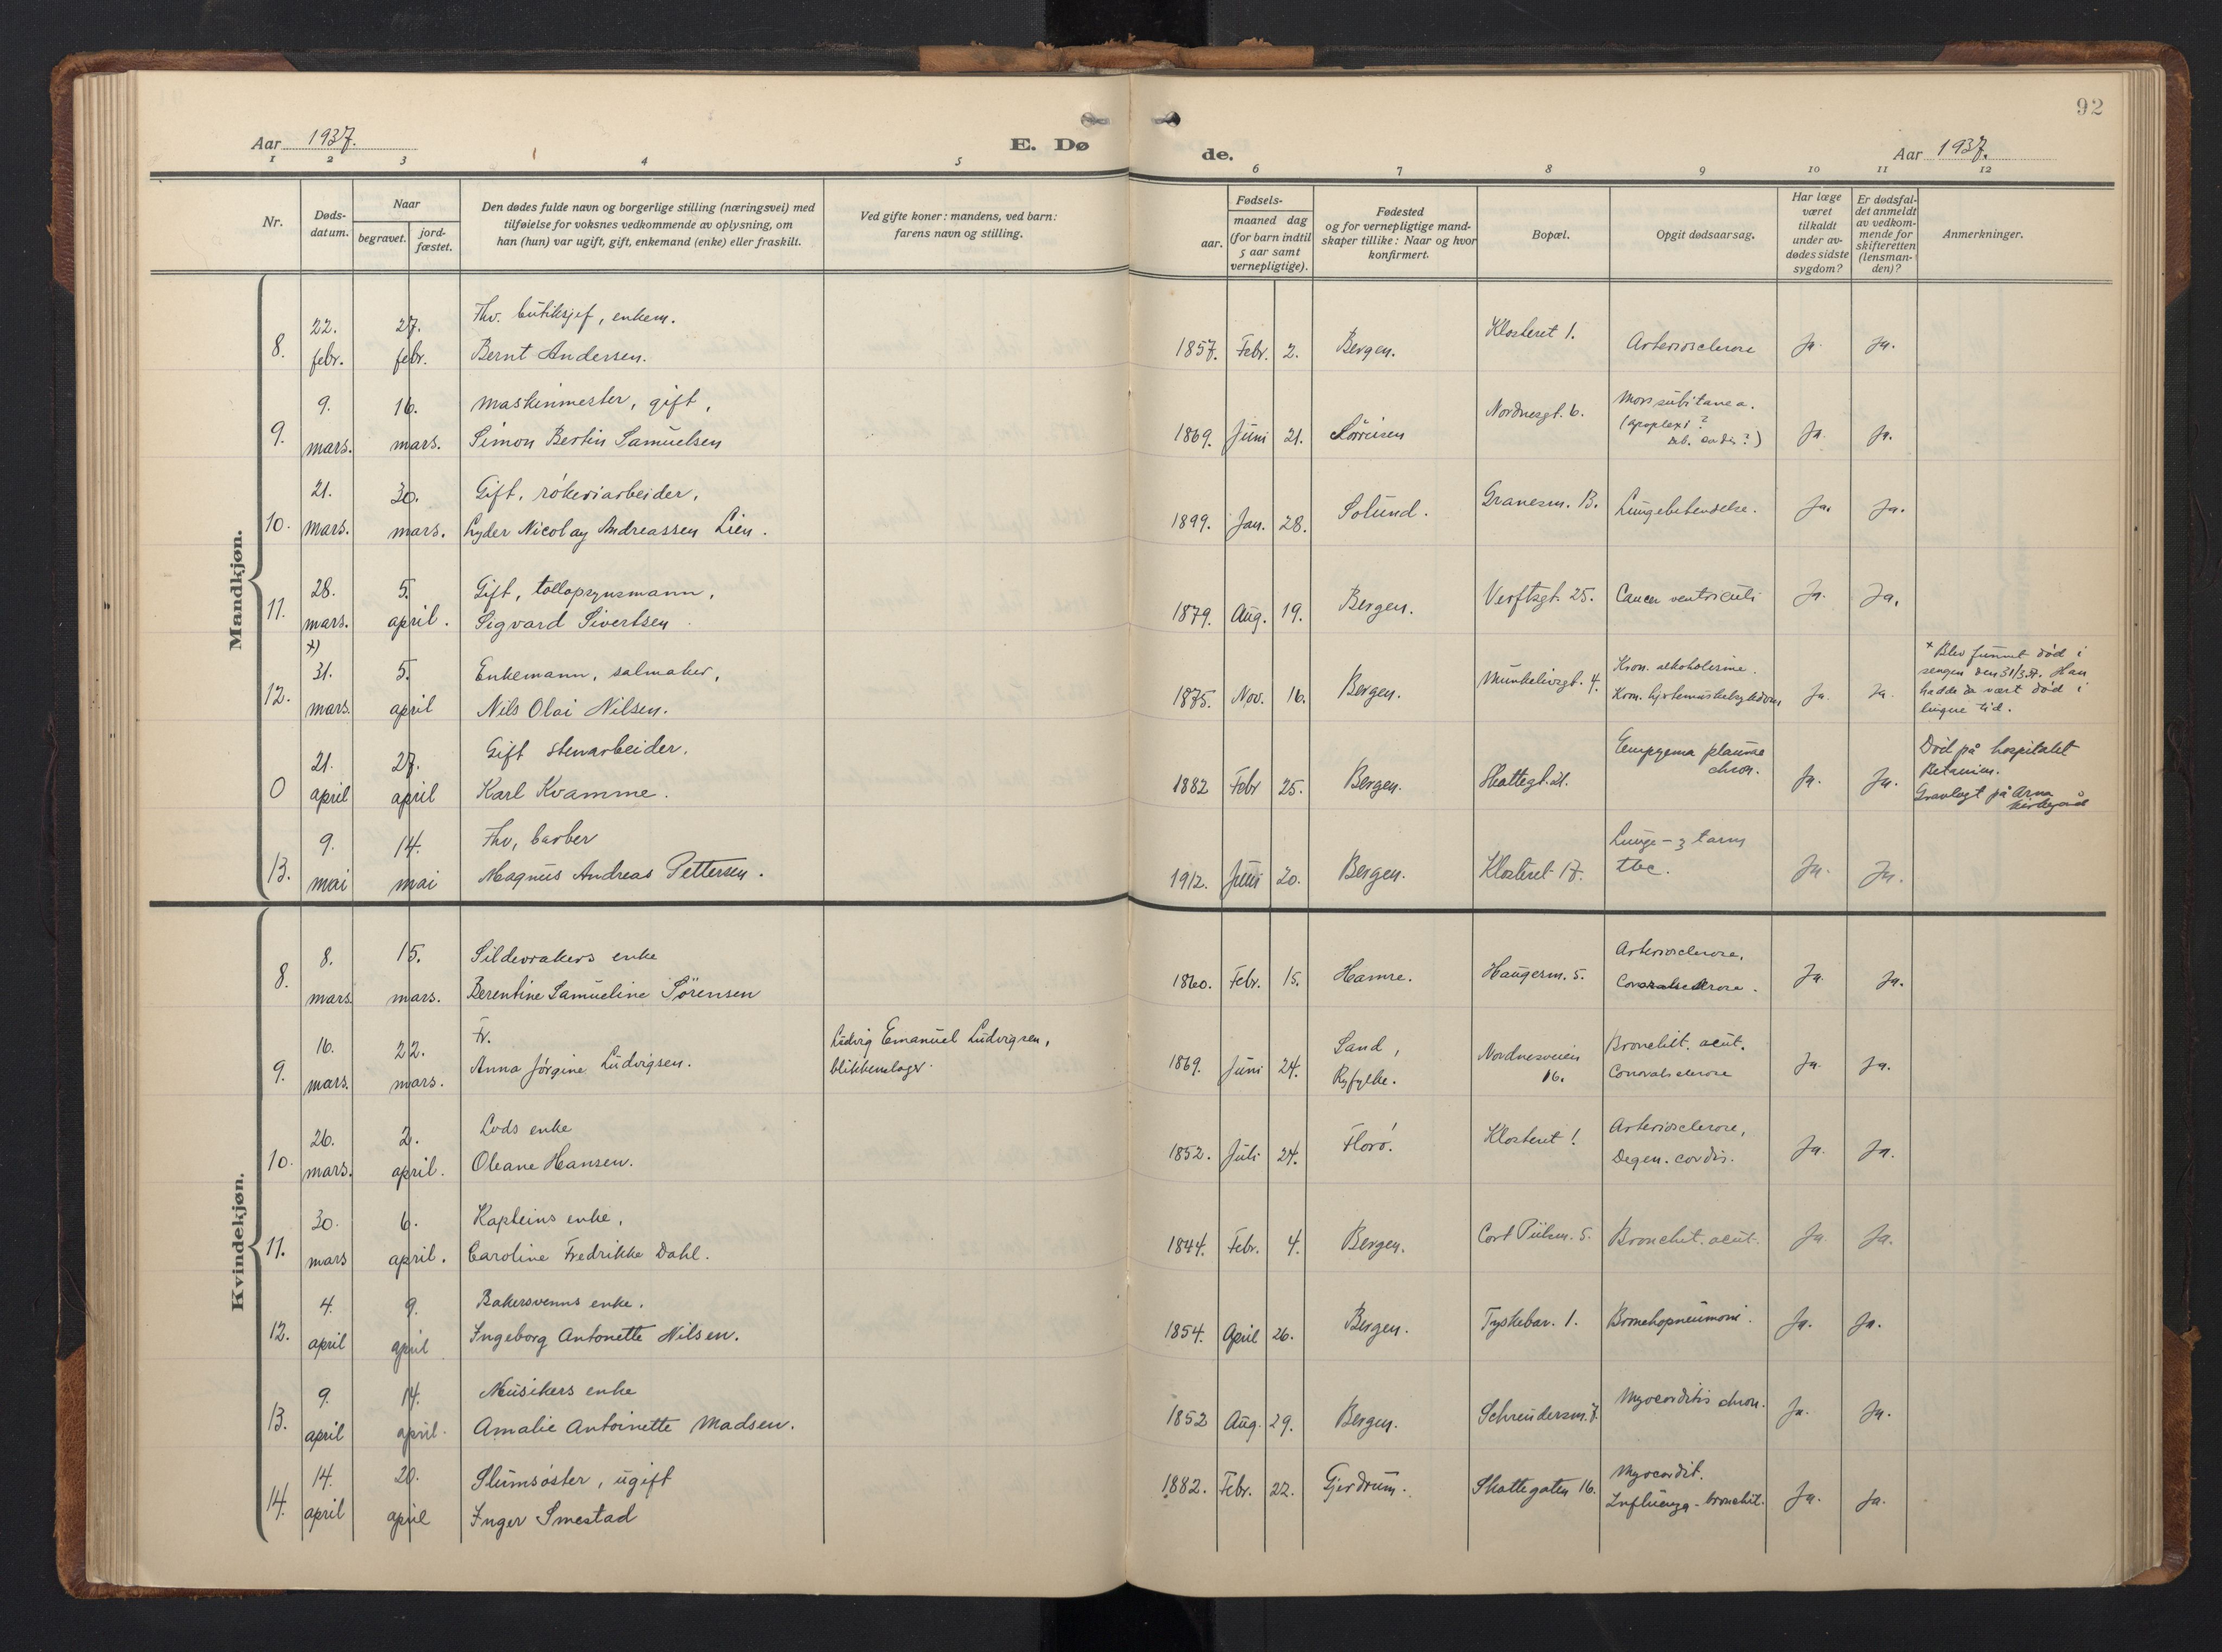 92
Aar 1937.
E. Dø
de.
Aar 1937.
1 2 3 4 5 6 7 8 9 10 11 12
Nr.
Døds-
datum.
Naar
begravet.
jord-
fæstet.
Den dødes fulde navn og borgerlige stilling (næringsvei) med
tilføielse for voksnes vedkommende av oplysning, om
han (hun) var ugift, gift, enkemand (enke) eller fraskilt.
Ved gifte koner: mandens, ved barn:
farens navn og stilling.
Fødsels-
aar.
maaned dag
(for barn indtil
5 aar samt
vernepligtige).
Fødested
og for vernepligtige mand-
skaper tillike: Naar og hvor
konfirmert.
Bopæl.
Opgit dødsaarsag.
Har læge
været
tilkaldt
under av-
dødes sidste
sygdom?
Er dødsfal-
det anmeldt
av vedkom-
mende for
skifteretten
(lensman-
den)?
Anmerkninger.
Mandkjøn.
8. 22. febr. 27. febr. Fhv. butiksjef, enkem.
Bernt Andersen.
1857. Febr. 2. Bergen. Klosteret 1. Arteriosclerose Ja. Ja.
9. 9. mars. 16. mars. Maskinmester, gift,
Simon Bertin Samuelsen
1869. Juni 21. Sörreisen Nordnesgt. 6. Mors subitanea.
(apoplexi?
cordis?) Ja. Ja.
10. 21. mars. 30. mars. Gift, rökeriarbeider,
Lyder Nicolay Andreassen Lien.
1899. Jan. 28. Solund. Granesm. 13. Lungebetendelse. Ja. Ja.
11. 28. mars. 5. april. Gift, tollopsynsmann,
Sigvard Sivertsen
1879. Aug. 19. Bergen. Verftsgt. 25. Cancer ventriculi Ja. Ja.
12. x) 31. mars. 5. april Enkemann, salmaker,
Nils Olai Nilsen.
1875. Nov. 16. Bergen. Munkelivsgt. 4. Kron. alkoholisme.
Kron. hjertemuskelsykdom Ja. Ja. x Blev funnet död i
sengen den 31/3.37. Han
hadde da vært död i
lengre tid.
0 21. april 27. april Gift stenarbeider.
Karl Kvamme.
1882 Febr 25. Bergen. Skottegt. 21. Empyema pleurae
chron. Ja. Ja. Död på hospitalet
Betanien.
Gravlagt på Arna
kirkegård
13. 9. mai 14. mai Fhv, barber
Magnus Andreas Pettersen.
1912. Juni 20. Bergen. Klosteret 17. Lunge- og tarm
tbc. Ja. Ja.
Kvindekjøn.
8. 8. mars. 15. mars. Sildevrakers enke
Berentine Samueline Sörensen
1860. Febr. 15. Hamre. Haugesm. 5. Arteriosclerose.
Ja. Ja.
9. 16. mars. 22. mars. Fr.
Anna Jörgine Ludvigsen.
Ludvig Emanuel Ludvigsen,
blikkenslager.
1869. Juni 24. Sand,
Ryfylke. Nordnesveien
16. Bronchit. acut.
Ja. Ja.
10. 26. mars. 2. april. Lods enke
Oleane Hansen.
1852. Juli 24. Florö. Klosteret 1 Arteriosclerose,
Degen. cordis. Ja. Ja.
11. 30. mars 6. april. Kapteins enke,
Caroline Fredrikke Dahl.
1844. Febr. 4. Bergen. Cort Piilsm. 5. Bronchit. acut. Ja. Ja.
12. 4. april 9. april Bakersvenns enke.
Ingeborg Antonette Nilsen.
1854. April 26. Bergen. Tyskebar. 1. Bronchopneumoni. Ja. Ja.
13. 9. april 14. april. Musikers enke
Amalie Antoinette Madsen.
1852 Aug. 29. Bergen. Schreudersm. 7. Myocarditis chron. Ja. Ja.
14. 14. april 20. april Slumsöster, ugift
Inger Smestad
1882. Febr. 22. Gjerdrum. Skottegaten 16. Myocardit.
Influenza-bronchit. Ja. Ja.